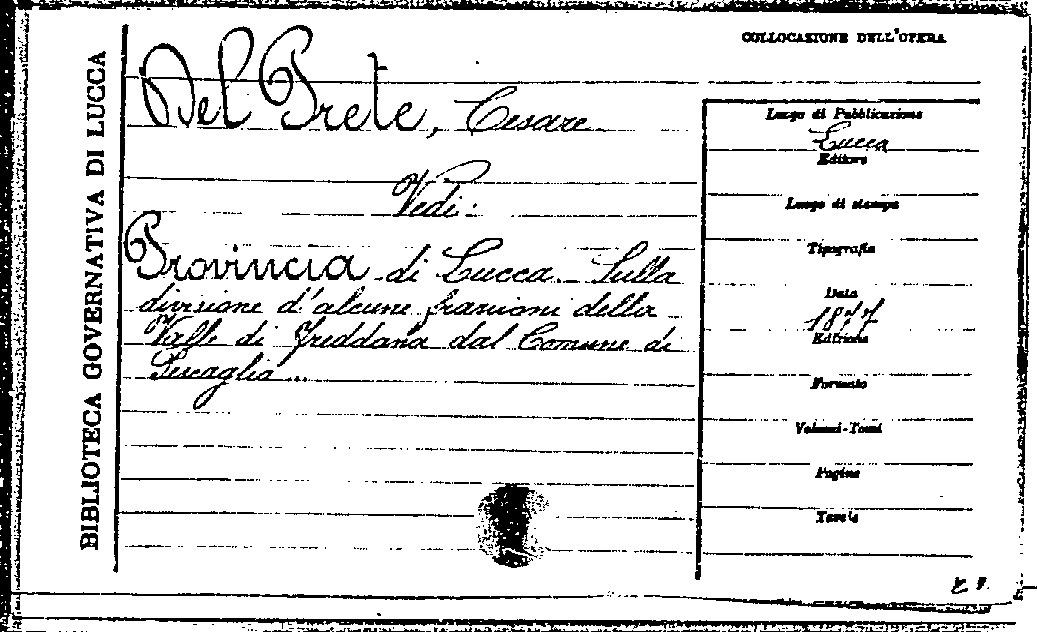 BIBLIOTECA GOVERNATIVA DI LUCCA
Del Prete, Cesare
Vedi:
Provincia di Lucca. Sulla
divisione d'alcune frazioni della
Valle di Freddana dal Comune di
Pescaglia...
COLLOCAZIONE DELL'OPERA
Luogo di Pubblicazione
Lucca
Editore
Luogo di stampa
Tipografia
Data
1877
Edizione
Formato
Volumi-Tomi
Pagine
Tavole